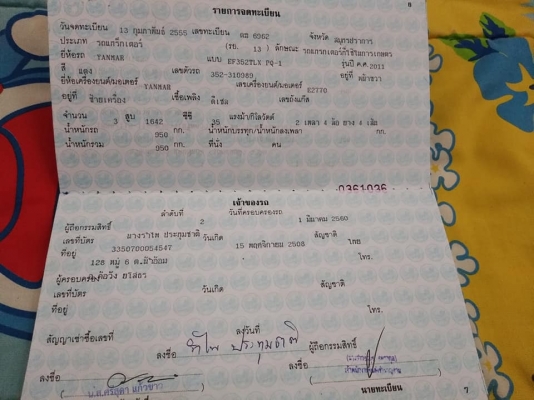 8
รายการจดทะเบียน
วันจดทะเบียน 13 กุมภาพันธ์ 2555 เลขทะเบียน ตฆ 6062 จังหวัด สมุทรปราการ
ประเภท รถแทรกเตอร์ (รย. 13 ) ลักษณะ รถแทรกเตอร์ที่ใช้ในการเกษตร
ยี่ห้อรถ YANMAR แบบ EF352TLX PQ-1 รุ่นปี ค.ศ. 2011
สี แดง เลขตัวรถ 352-310989 อยู่ที่ หลังขวา
ยี่ห้อเครื่องยนต์/มอเตอร์ YANMAR เลขเครื่องยนต์/มอเตอร์ 62770
อยู่ที่ ซ้ายเครื่อง เชื้อเพลิง ดีเซล เลขถังแก๊ส
จำนวน 3 สูบ 1642 ซีซี 35 แรงม้า/กิโลวัตต์ 2 เพลา 4 ล้อ ยาง 4 เส้น
น้ำหนักรถ 950 กก. น้ำหนักบรรทุก/น้ำหนักลงเพลา กก.
น้ำหนักรวม 950 กก. ที่นั่ง คน
0361036
เจ้าของรถ
ลำดับที่ 2 วันที่ครอบครองรถ 1 มีนาคม 2560
ผู้ถือกรรมสิทธิ์ ประทุมชาติ
เลขที่บัตร 3350700054547 วันเกิด 15 พฤศจิกายน 2508 สัญชาติ ไทย
ที่อยู่ 128 หมู่ 6 โทร.
ผู้ครอบครอง
เลขที่บัตร วันเกิด สัญชาติ
ที่อยู่ โทร.
สัญญาเช่าซื้อเลขที่ ลงวันที่
ลงชื่อ ผู้ถือกรรมสิทธิ์
ลงชื่อ
นายทะเบียน
7